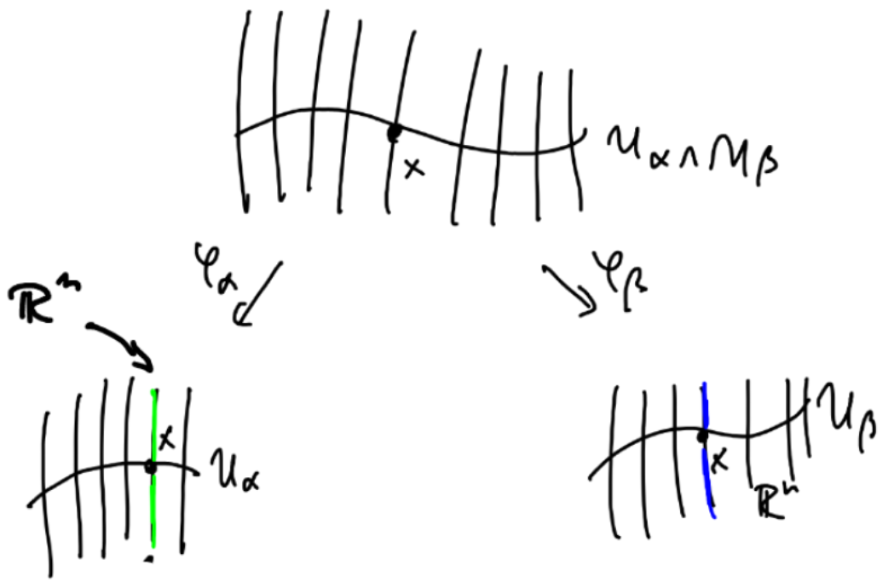 x
U_α ∩ U_β
φ_α
φ_β
ℝⁿ
x
U_α
U_β
x
ℝⁿ